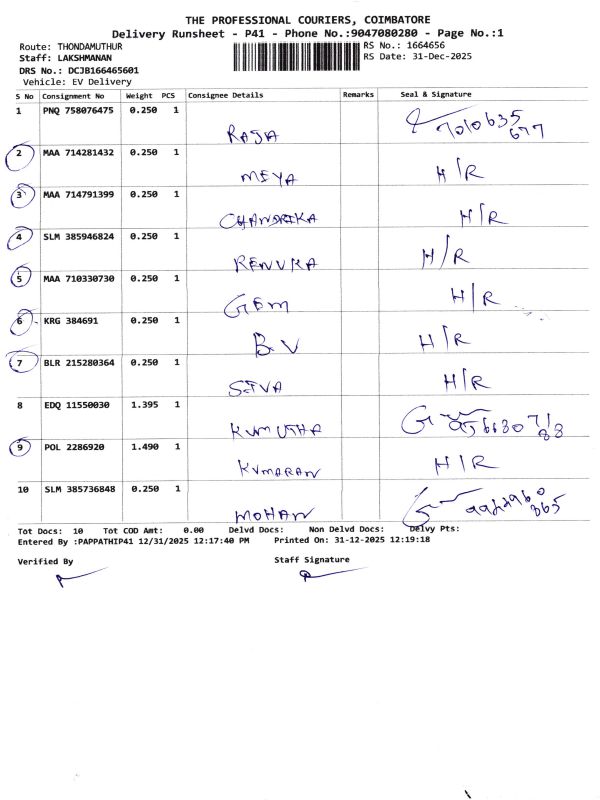 THE PROFESSIONAL COURIERS, COIMBATORE
Delivery Runsheet - P41 - Phone No.:9047080280 - Page No.:1
Route: THONDAMUTHUR RS No.: 1664656
Staff: LAKSHMANAN RS Date: 31-Dec-2025
DRS No.: DCJB166465601
Vehicle: EV Delivery
S No Consignment No Weight PCS Consignee Details Remarks Seal & Signature
1 PNQ 758076475 0.250 1
RAJA 7010635
677
2 MAA 714281432 0.250 1
MEYA H/R
3 MAA 714791399 0.250 1
CHANDRIKA H/R
4 SLM 385946824 0.250 1
RENUKA H/R
5 MAA 710330730 0.250 1
GEM H/R
6 KRG 384691 0.250 1
B.V H/R
7 BLR 215280364 0.250 1
SIVA H/R
8 EDQ 11550030 1.395 1
KUMUTHA
9 POL 2286920 1.490 1
KUMARAN H/R
10 SLM 385736848 0.250 1
MOHAN
Tot Docs: 10 Tot COD Amt: 0.00 Delvd Docs: Non Delvd Docs: Delvy Pts:
Entered By :PAPPATHIP41 12/31/2025 12:17:40 PM Printed On: 31-12-2025 12:19:18
Verified By Staff Signature